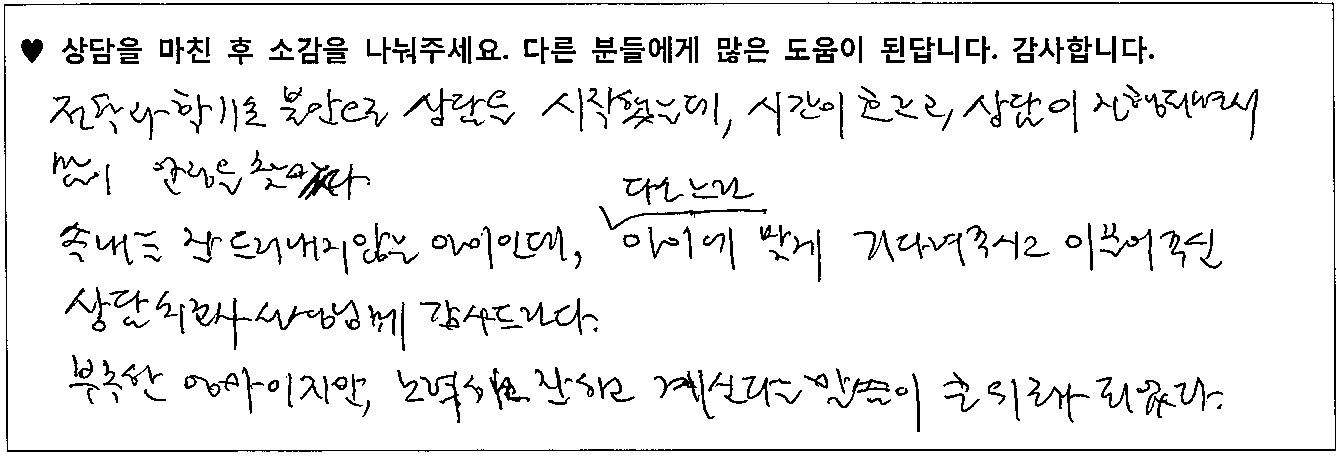 ♥ 상담을 마친 후 소감을 나눠주세요. 다른 분들에게 많은 도움이 된답니다. 감사합니다.
전학과 학기초 불안으로 상담을 시작했는데, 시간이 흐르고, 상담이 진행되면서
많이 안정을 찾았다.
다소 느린
속내를 잘 드러내지 않는 아이인데, 아이에 맞게 기다려주시고 이끌어주신
상담치료사 선생님께 감사드린다.
부족한 엄마이지만, 노력하고 잘하고 계신다는 말씀이 큰 위로가 되었다.